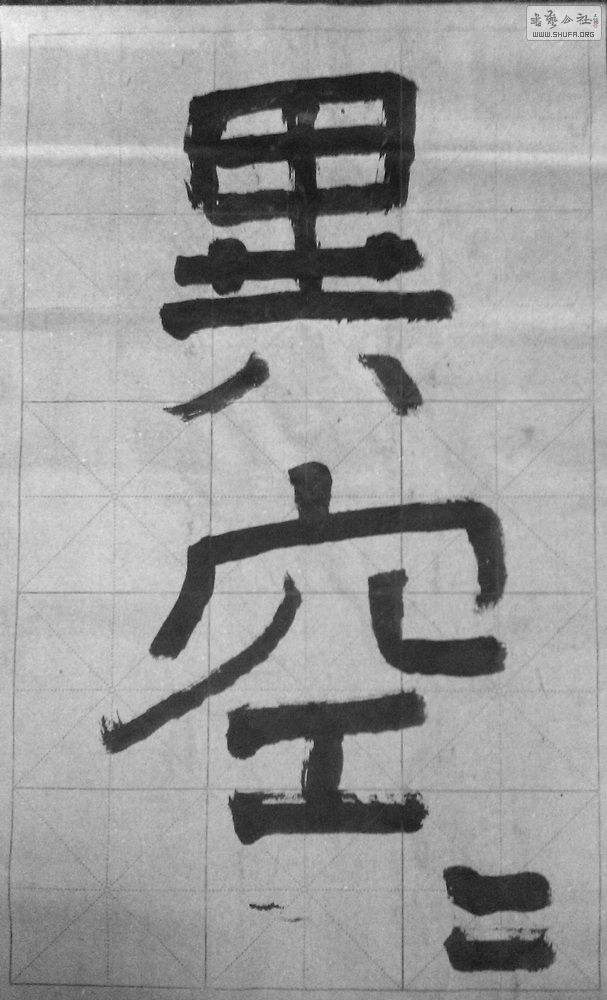 異空二
书艺公社
WWW.SHUFA.ORG